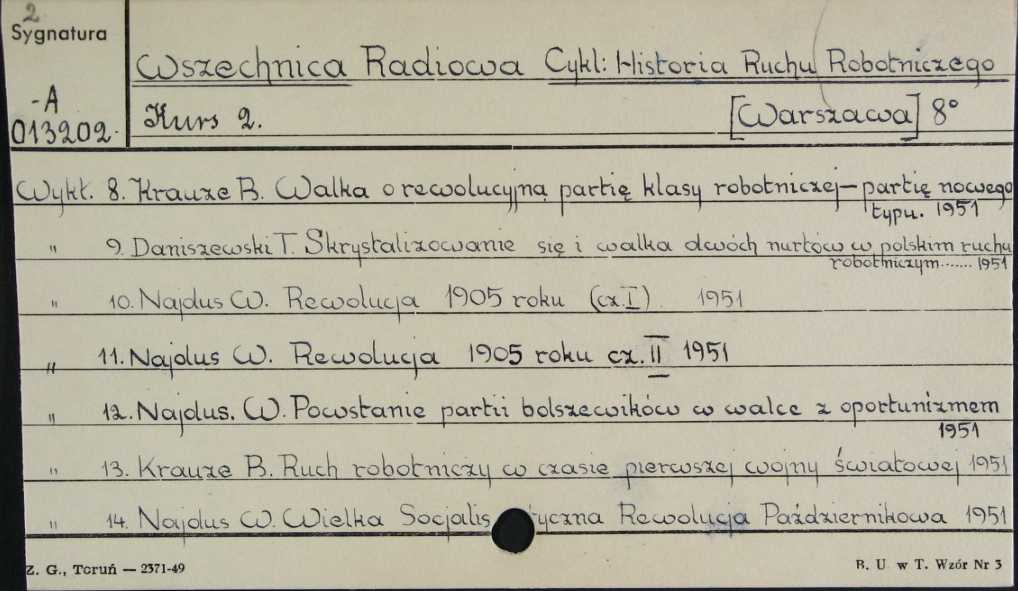 2
Sygnatura
-A
013202.
Wszechnica Radiowa Cykl: Historia Ruchu Robotniczego
Kurs 2. [Warszawa] 8°
Wykł. 8. Krauze B. Walka o rewolucyjną partię klasy robotniczej — partię nowego
typu. 1951
" 9. Daniszewski T. Skrystalizowanie się i walka dwóch nurtów w polskim ruchu
robotniczym....... 1951
" 10. Najdus W. Rewolucja 1905 roku (cz. I). 1951
" 11. Najdus W. Rewolucja 1905 roku cz. II 1951
" 12. Najdus. W. Powstanie partii bolszewików w walce z oportunizmem
1951
" 13. Krauze B. Ruch robotniczy w czasie pierwszej wojny światowej 1951
" 14. Najdus W. Wielka Socjalis tyczna Rewolucja Październikowa 1951
Z. G., Toruń — 2371-49 B. U. w T. Wzór Nr 3